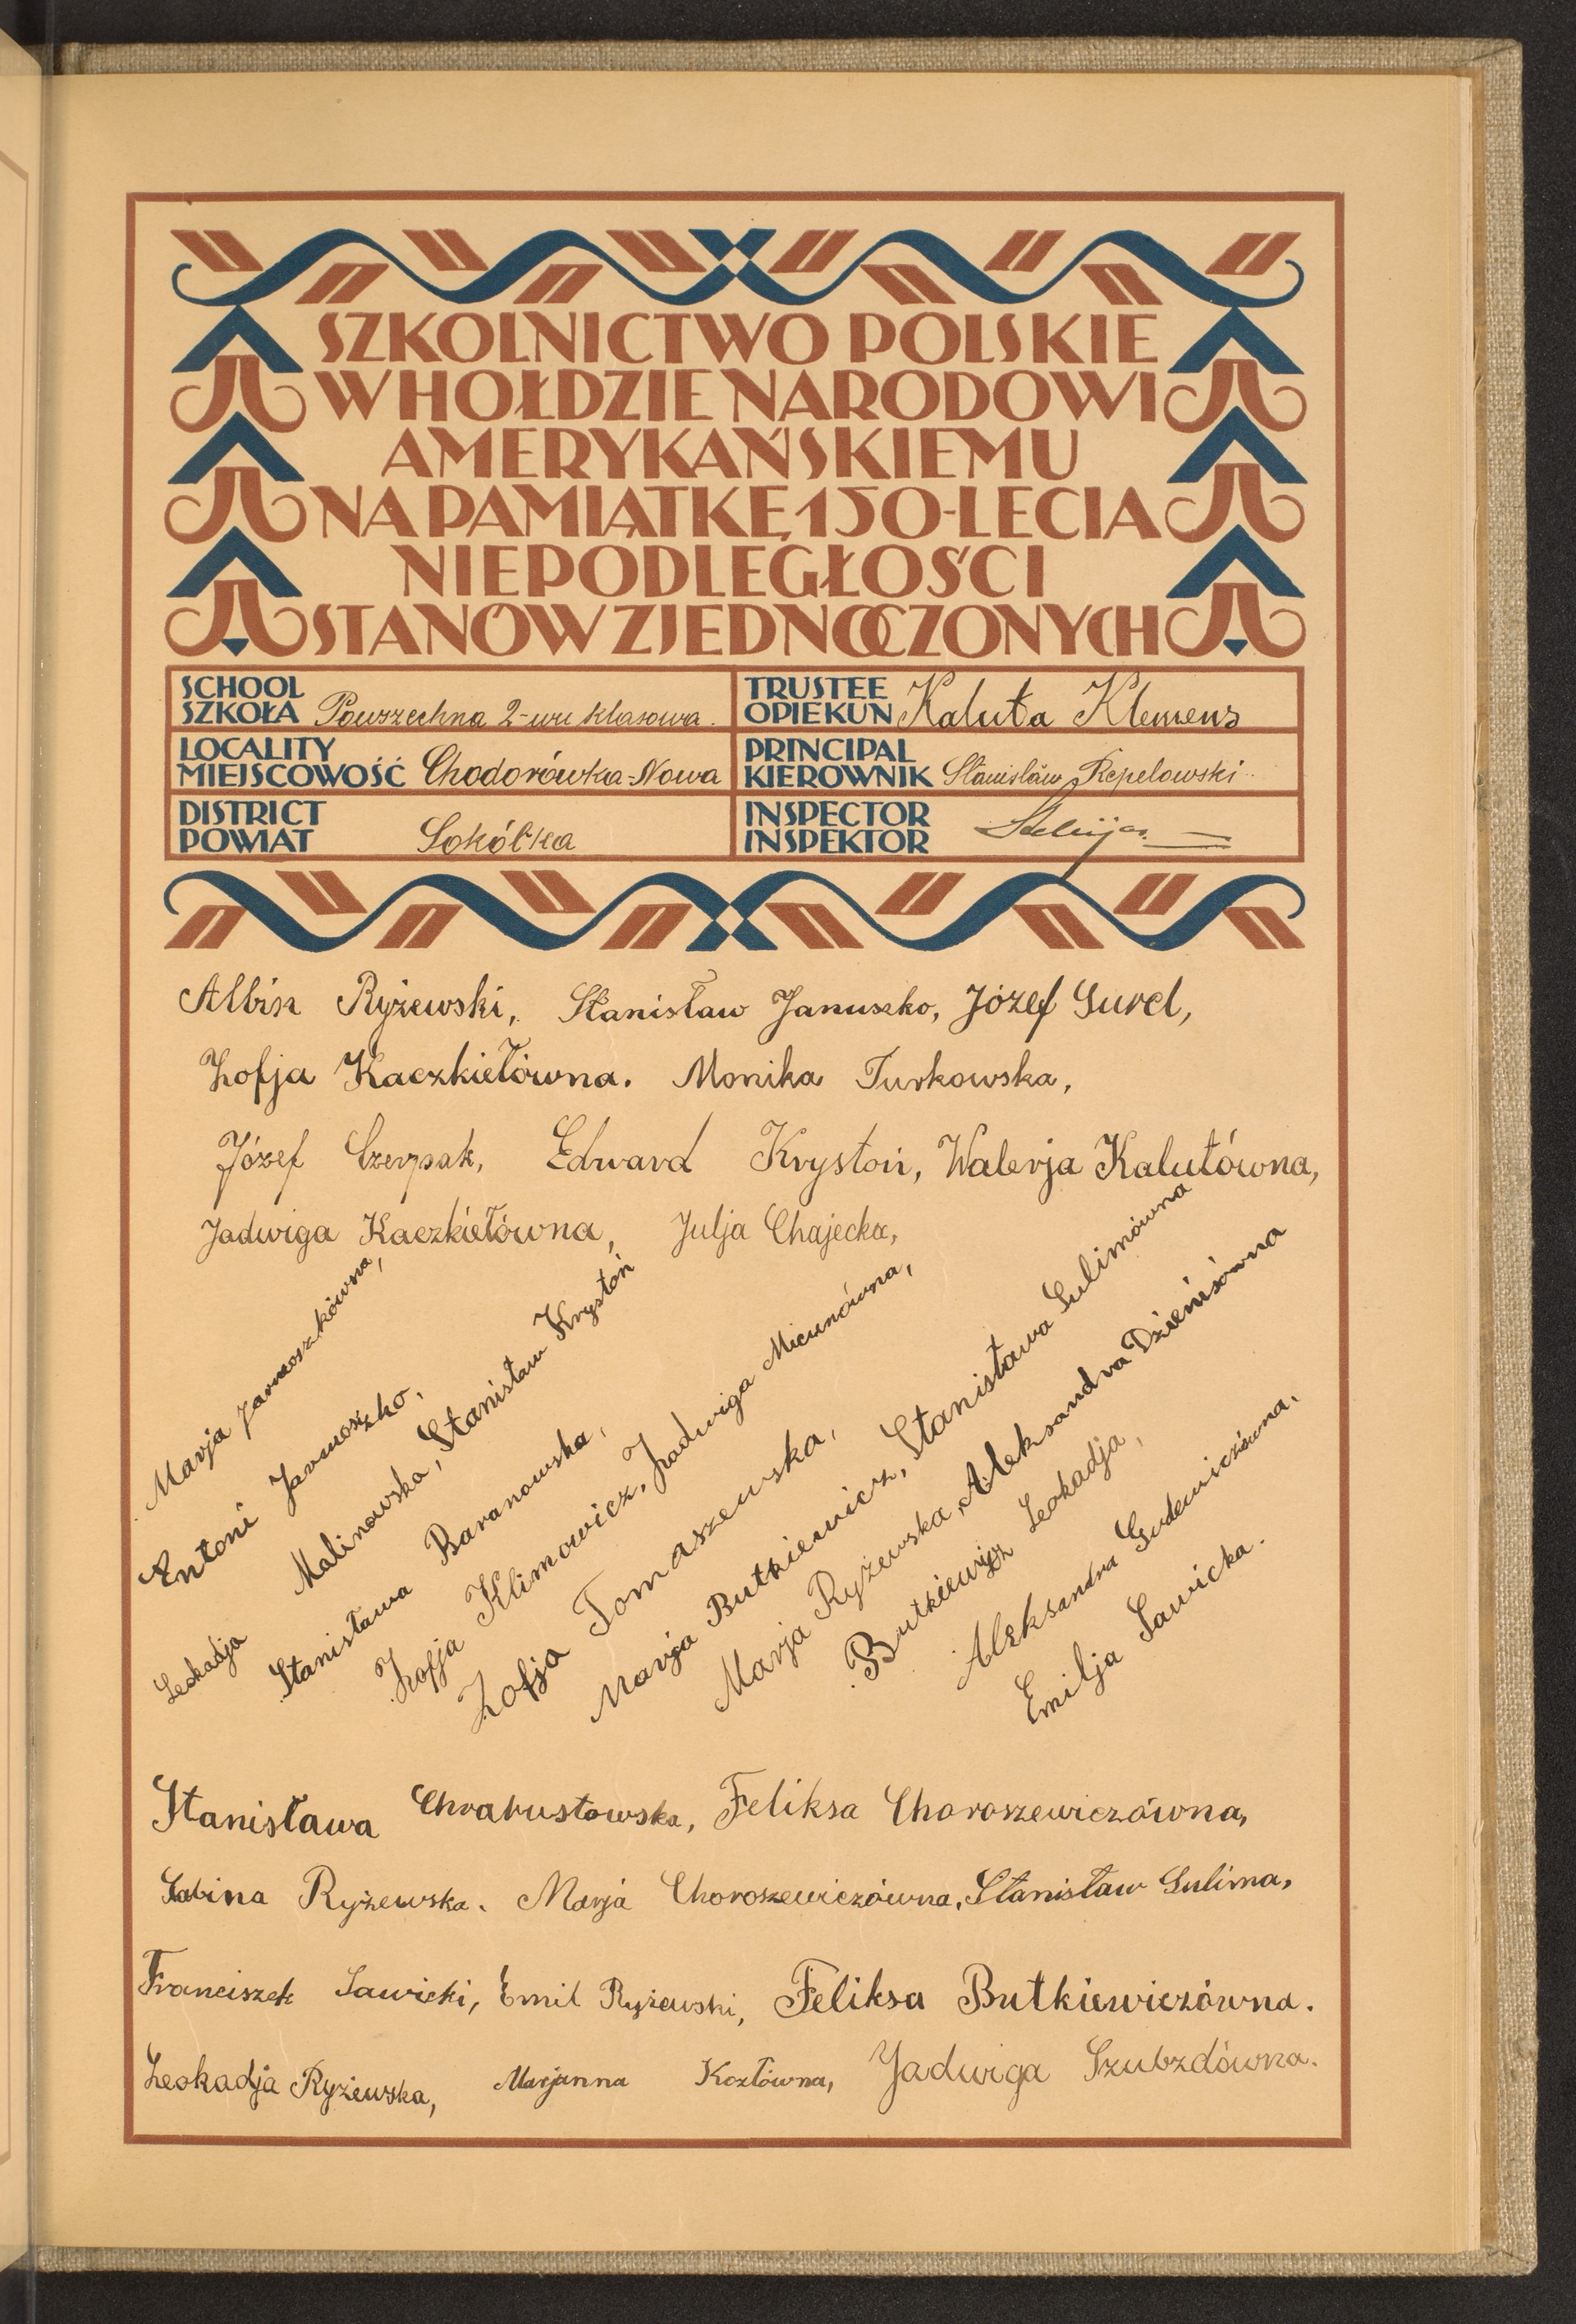 SZKOLNICTWO POLSKIE
W HOŁDZIE NARODOWI
AMERYKAŃSKIEMU
NA PAMIĄTKĘ 150-LECIA
NIEPODLEGŁOŚCI
STANÓW ZJEDNOCZONYCH
SCHOOL
SZKOŁA Powszechna 2-wu klasowa.
TRUSTEE
OPIEKUN Kaluta Klemens
LOCALITY
MIEJSCOWOŚĆ Chodorówka-Nowa
PRINCIPAL
KIEROWNIK Stanisław Repelowski
DISTRICT
POWIAT Sokółka
INSPECTOR
INSPEKTOR
Albin Ryżewski, Stanisław Januszko, Józef Gurel,
Zofja Kaczkiełówna. Monika Turkowska,
Józef Czerpak, Edward Krystoń, Walerja Kalutówna,
Jadwiga Kaczkiełówna, Julja Chajecka,
Marja Jarmoszkówna,
Antoni Jarmoszko,
Leokadja Malinowska, Stanisław Krystoń
Stanisława Baranowska,
Zofja Klimowicz, Jadwiga Micunówna,
Zofja Tomaszewska,
Marja Butkiewicz, Stanisława Sulimówna
Marja Ryżewska, Aleksandra Dzienisówna
Butkiewicz Leokadja,
Aleksandra Gudewiczówna,
Emilja Sawicka.
Stanisława Chrabustowska, Feliksa Choroszewiczówna,
Sabina Ryżewska. Marja Choroszewiczówna, Stanisław Sulima,
Franciszek Sawicki, Emil Ryżewski, Feliksa Butkiewiczówna.
Leokadja Ryżewska, Marjanna Kozłówna, Jadwiga Szubzdówna.